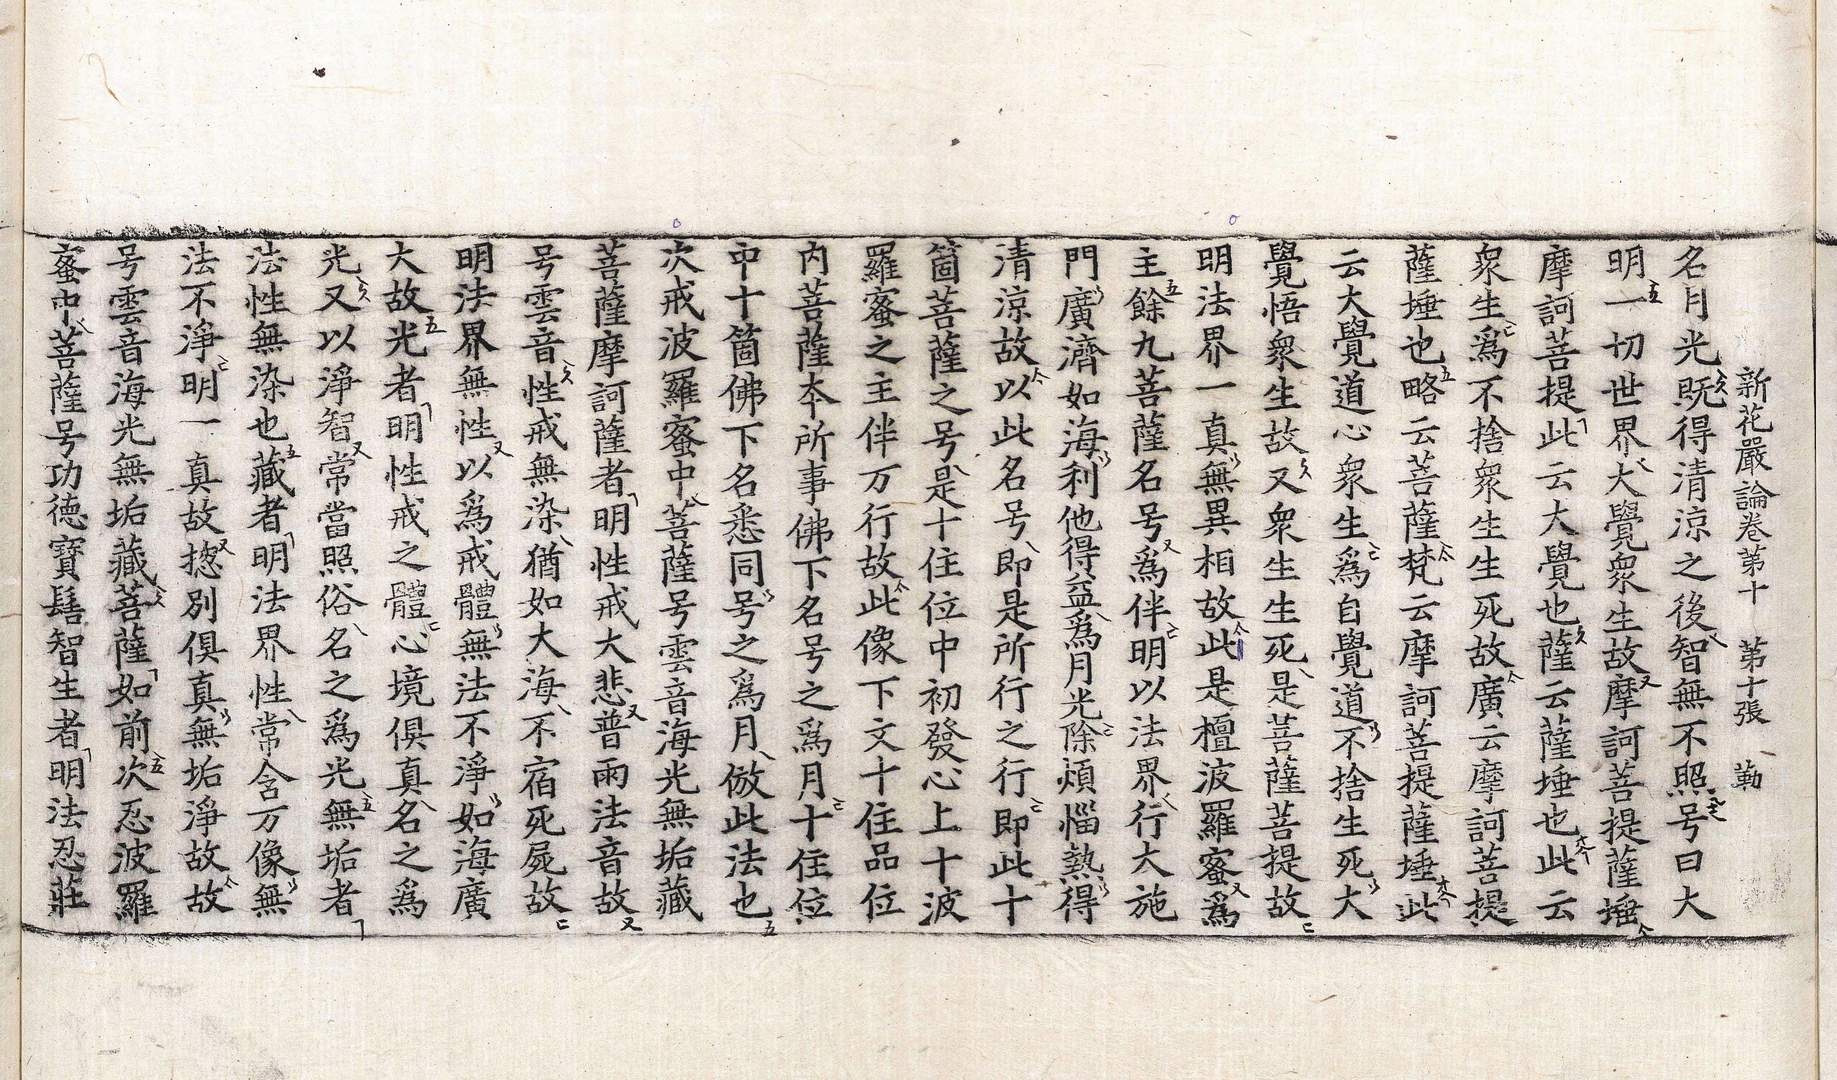 新花嚴論卷第十 第十張 勒
名月光旣得清涼之後智無不照号曰大
明一切世界大覺衆生故摩訶菩提薩埵
摩訶菩提此云大覺也薩云薩埵也此云
衆生爲不捨衆生生死故廣云摩訶菩提
薩埵也略云菩薩梵云摩訶菩提薩埵此
云大覺道心衆生爲自覺道不捨生死大
覺悟衆生故又衆生生死是菩薩菩提故
明法界一真無異相故此是檀波羅蜜爲
主餘九菩薩名号爲伴明以法界行大施
門廣濟如海利他得益爲月光除煩惱熱得
清涼故以此名号即是所行之行即此十
箇菩薩之号是十住位中初發心上十波
羅蜜之主伴万行故此像下文十住品位
内菩薩本所事佛下名号之爲月十住位
中十箇佛下名悉同号之爲月倣此法也
次戒波羅蜜中菩薩号雲音海光無垢藏
菩薩摩訶薩者明性戒大悲普雨法音故
号雲音性戒無染猶如大海不宿死屍故
明法界無性以爲戒體無法不淨如海廣
大故光者明性戒之體心境俱真名之爲
光又以淨智常當照俗名之爲光無垢者
法性無染也藏者明法界性常含万像無
法不淨明一真故揔別俱真無垢淨故故
号雲音海光無垢藏菩薩如前次忍波羅
蜜中菩薩号功德寶髻智生者明法忍莊